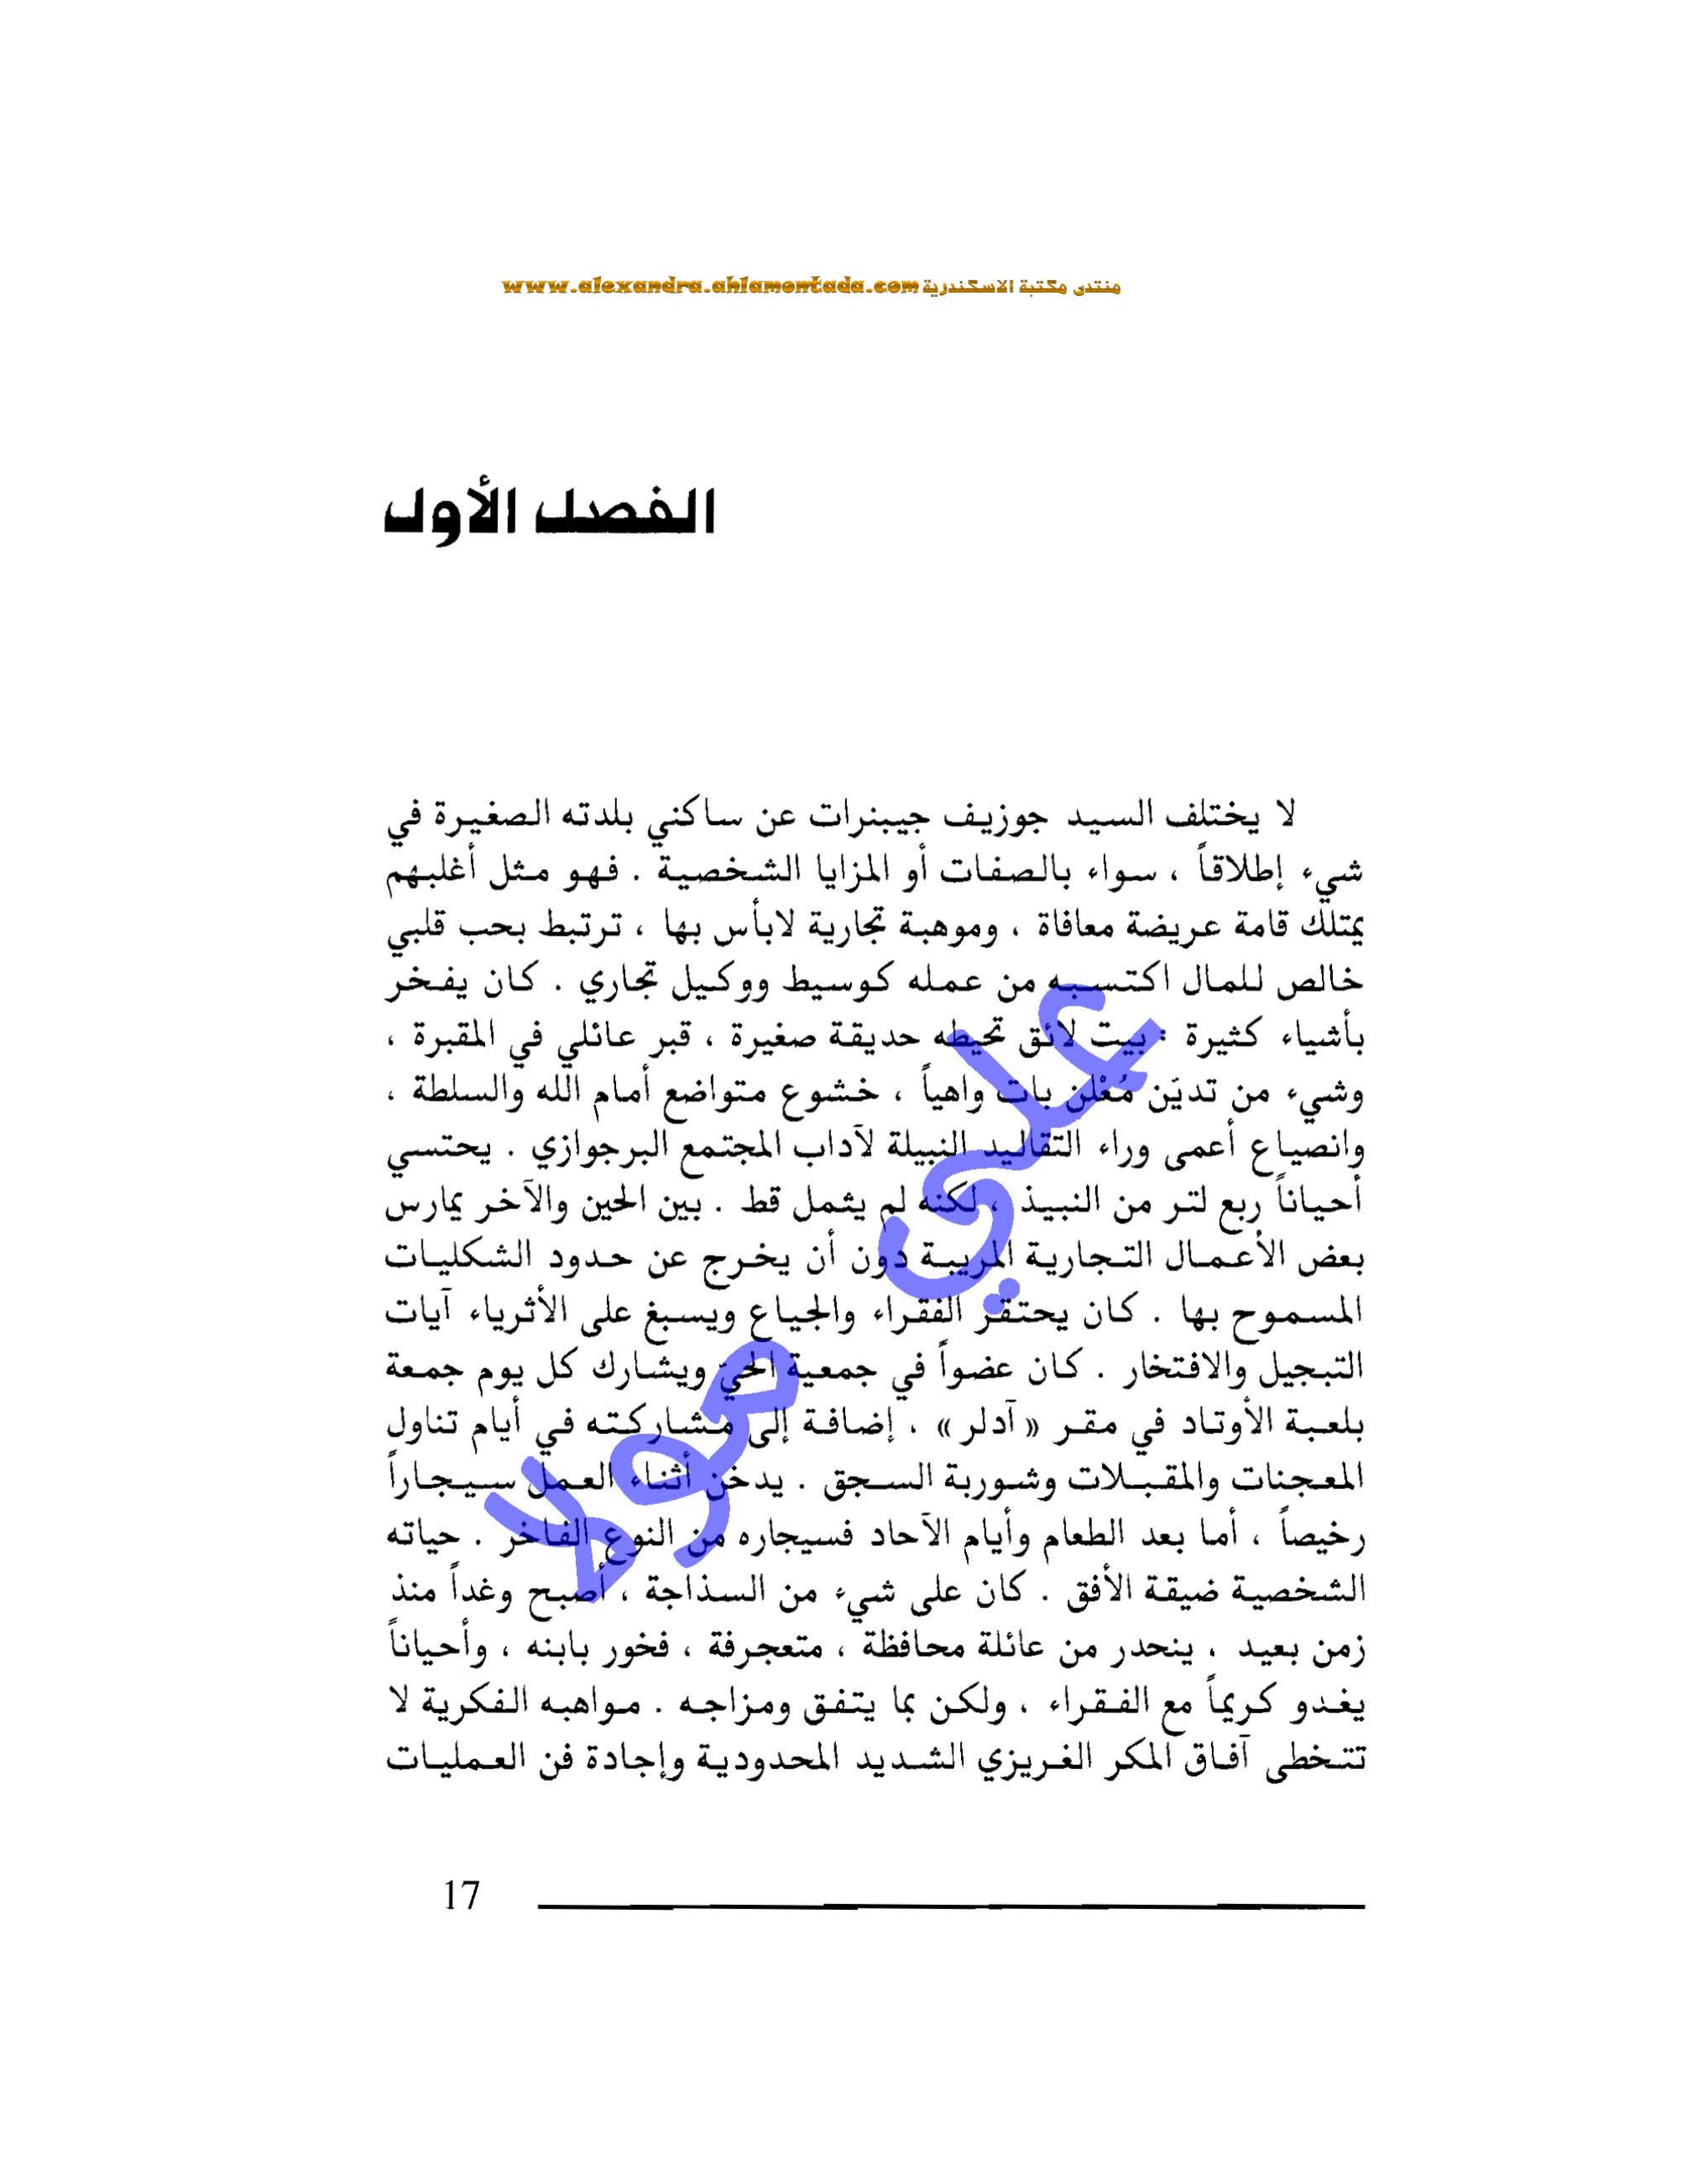 منتدى مكتبة الاسكندرية www.alexandra.ahlamontada.com
الفصل الأول
لا يختلف السيد جوزيف جيبنرات عن ساكني بلدته الصغيرة في
شيء إطلاقاً ، سواء بالصفات أو المزايا الشخصية . فهو مثل أغلبهم
يمتلك قامة عريضة معافاة ، وموهبة تجارية لابأس بها ، ترتبط بحب قلبي
خالص للمال اكتسبه من عمله كوسيط ووكيل تجاري . كان يفخر
بأشياء كثيرة : بيت لائق تحيطه حديقة صغيرة ، قبر عائلي في المقبرة ،
وشيء من تديّن مُعْلن بات واهياً ، خشوع متواضع أمام الله والسلطة ،
وانصياع أعمى وراء التقاليد النبيلة لآداب المجتمع البرجوازي . يحتسي
أحياناً ربع لتر من النبيذ ، لكنه لم يثمل قط . بين الحين والآخر يمارس
بعض الأعمال التجارية المريبة دون أن يخرج عن حدود الشكليات
المسموح بها . كان يحتقر الفقراء والجياع ويسبغ على الأثرياء آيات
التبجيل والافتخار . كان عضواً في جمعية الحيّ ويشارك كل يوم جمعة
بلعبة الأوتاد في مقر « آدلر » ، إضافة إلى مشاركته في أيام تناول
المعجنات والمقبلات وشوربة السجق . يدخن أثناء العمل سيجاراً
رخيصاً ، أما بعد الطعام وأيام الآحاد فسيجاره من النوع الفاخر . حياته
الشخصية ضيقة الأفق . كان على شيء من السذاجة ، أصبح وغداً منذ
زمن بعيد ، ينحدر من عائلة محافظة ، متعجرفة ، فخور بابنه ، وأحياناً
يغدو كريماً مع الفقراء ، ولكن بما يتفق ومزاجه . مواهبه الفكرية لا
تتخطى آفاق المكر الغريزي الشديد المحدودية وإجادة فن العمليات
17
علي مولا